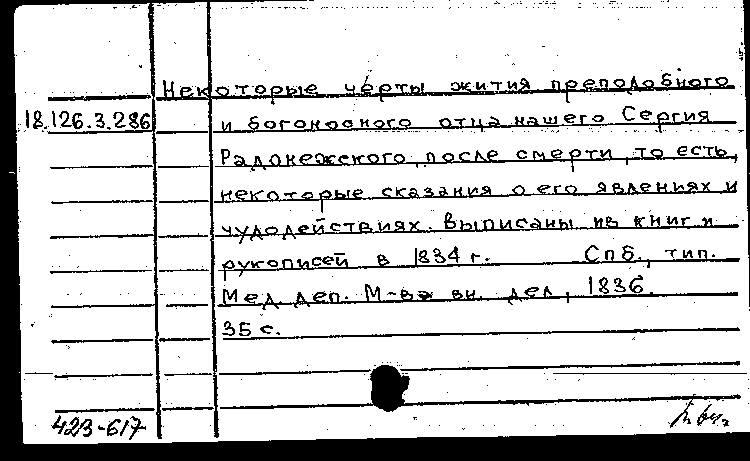 Некоторые черты жития преподобного
18.126.3.286 и богоносного отца нашего Сергия
Радонежского, после смерти, то есть,
некоторые сказания о его явлениях и
чудодействиях. Выписаны из книг и
рукописей в 1834 г. Спб., тип.
Мед. деп. М-ва вн. дел, 1836.
35 с.
423-617